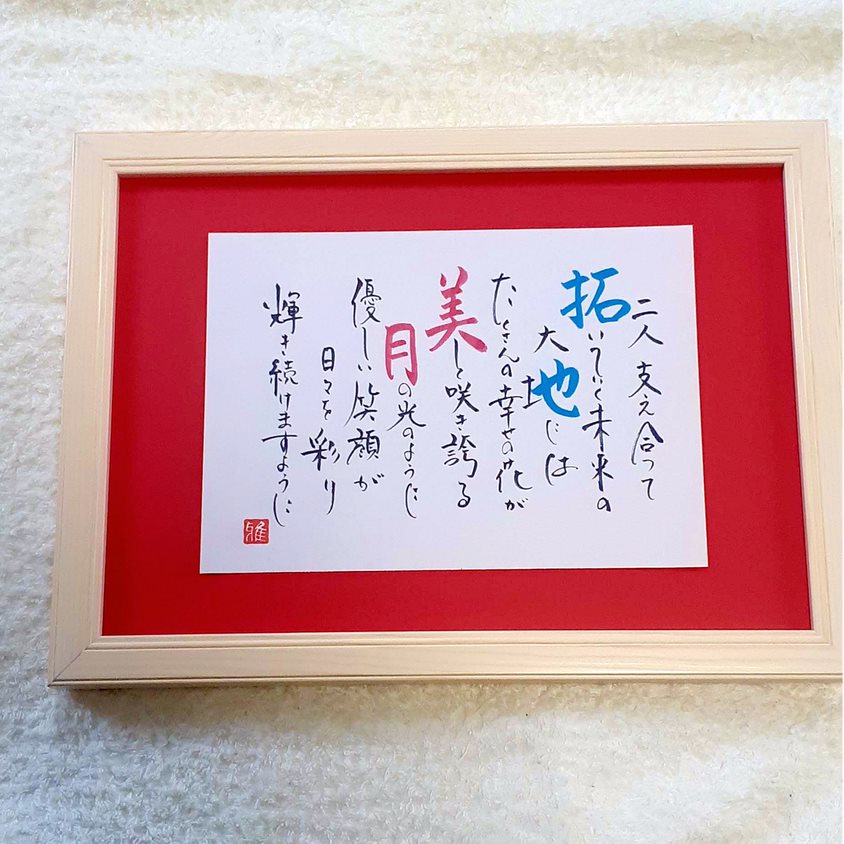 二人 支え合って
拓いていく未来の
大地には
たくさんの幸せの花が
美しと咲き誇る
月の光のように
優しい笑顔が
日々を彩り
輝き続けますように
雅